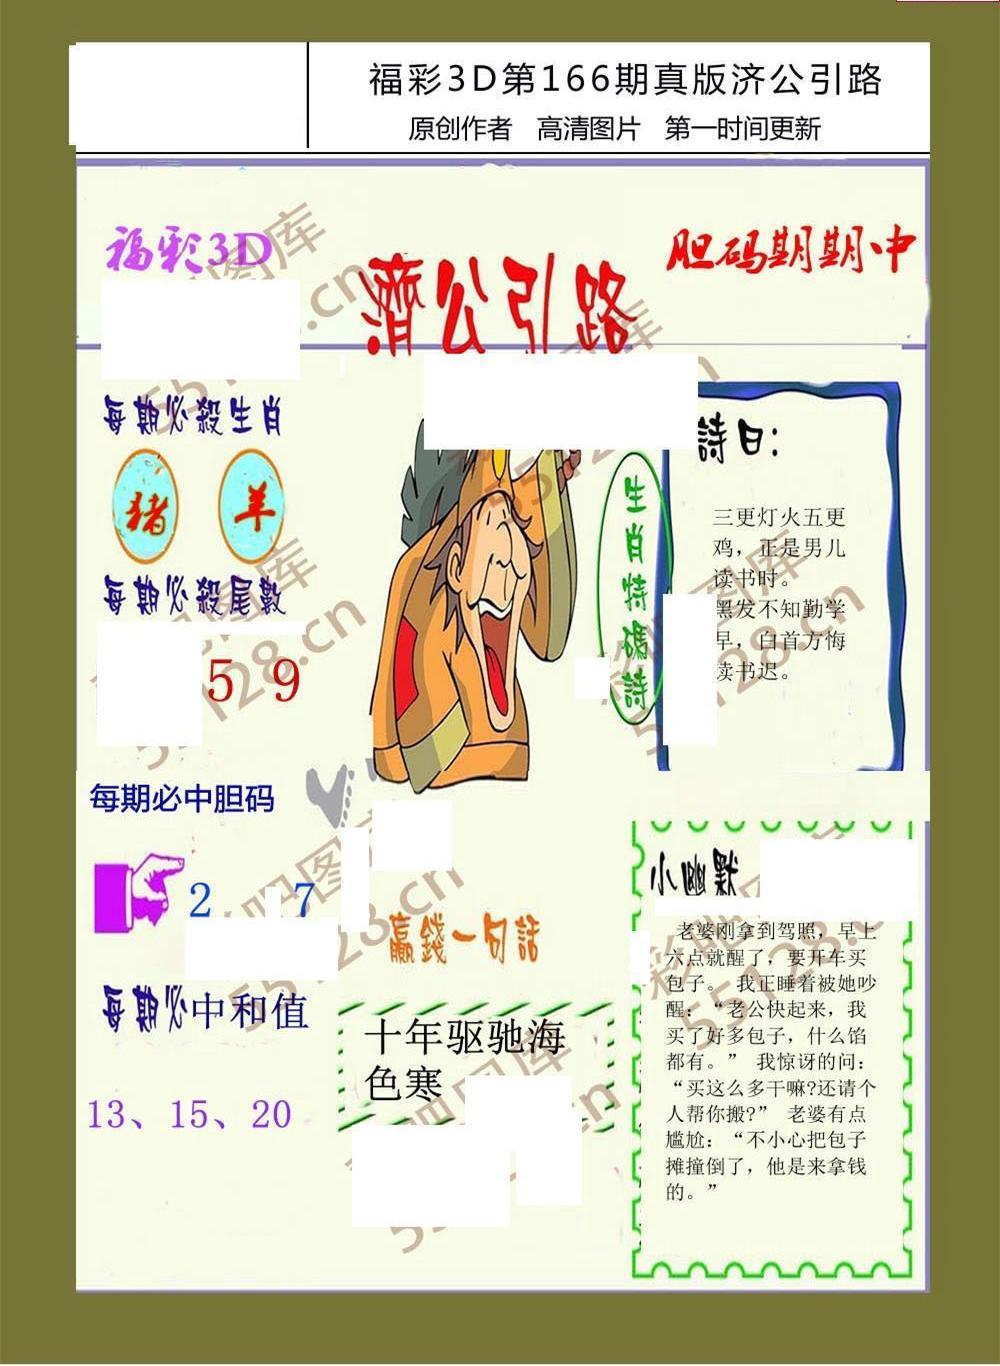 福彩3D第166期真版济公引路
原创作者 高清图片 第一时间更新
福彩3D
濟公引路
胆码期期中
每期必殺生肖
猪 羊
每期必殺尾數
5 9
每期必中胆码
2 7
每期必中和值
13、15、20
生肖特碼詩
詩曰：
三更灯火五更
鸡，正是男儿
读书时。
黑发不知勤学
早，白首方悔
读书迟。
赢錢一句話
十年驱驰海
色寒
小幽默
老婆刚拿到驾照，早上
六点就醒了，要开车买
包子。 我正睡着被她吵
醒：“老公快起来，我
买了好多包子，什么馅
都有。” 我惊讶的问：
“买这么多干嘛?还请个
人帮你搬?” 老婆有点
尴尬：“不小心把包子
摊撞倒了，他是来拿钱
的。”